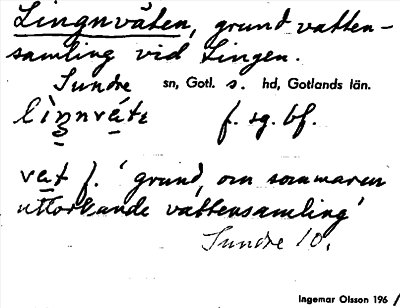 Lingnväten, grund vatten-
samling vid Lingen.
Sundre sn, Gotl. s. hd, Gotlands län.
f. sg. bf.
vat f. 'grund, om sommaren
uttorkande vattensamling'
Sundre 10.
Ingemar Olsson 196